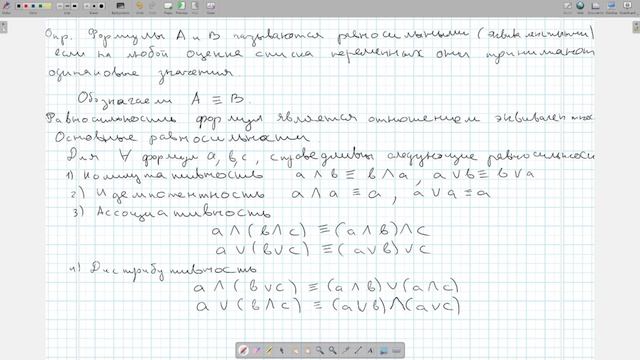 Опр. Формулы A и B называются равносильными (эквивалентными)
если на любой оценке списка переменных они принимают
одинаковые значения.
Обозначаем A ≡ B.
Равносильность формул является отношением эквивалентнос
Основные равносильности
Для ∀ формул a, b, c, справедливы следующие равносильности
1) Коммутативность a ∧ b ≡ b ∧ a, a ∨ b ≡ b ∨ a
2) Идемпотентность a ∧ a ≡ a, a ∨ a ≡ a
3) Ассоциативность
a ∧ (b ∧ c) ≡ (a ∧ b) ∧ c
a ∨ (b ∨ c) ≡ (a ∨ b) ∨ c
4) Дистрибутивность
a ∧ (b ∨ c) ≡ (a ∧ b) ∨ (a ∧ c)
a ∨ (b ∧ c) ≡ (a ∨ b) ∧ (a ∨ c)